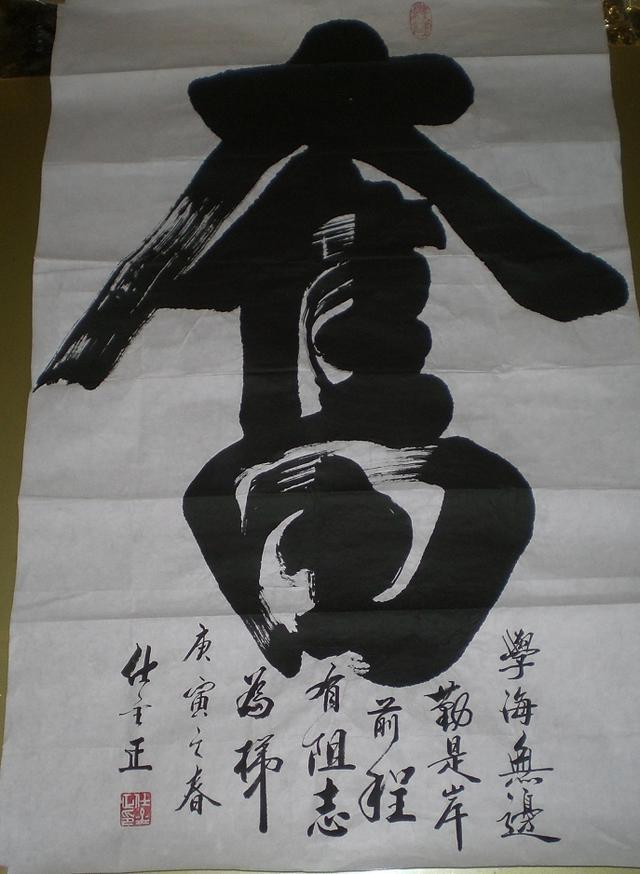 奮
學海無邊
勤是岸
前程
有阻志
為梯
庚寅之春
仕 正